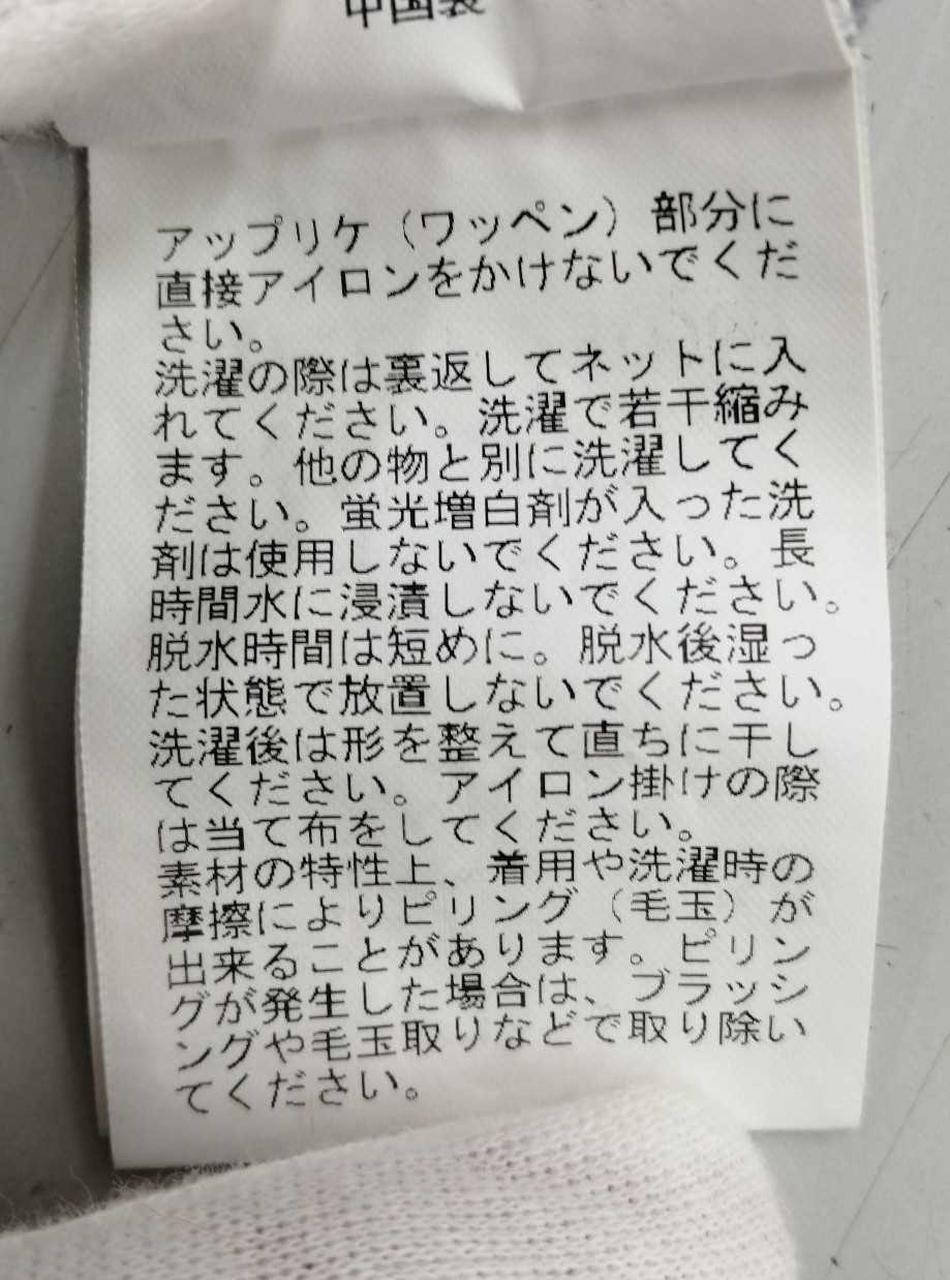 中国製
アップリケ（ワッペン）部分に
直接アイロンをかけないでくだ
さい。
洗濯の際は裏返してネットに入
れてください。洗濯で若干縮み
ます。他の物と別に洗濯してく
ださい。蛍光増白剤が入った洗
剤は使用しないでください。長
時間水に浸漬しないでください。
脱水時間は短めに。脱水後湿っ
た状態で放置しないでください。
洗濯後は形を整えて直ちに干し
てください。アイロン掛けの際
は当て布をしてください。
素材の特性上、着用や洗濯時の
摩擦によりピリング（毛玉）が
出来ることがあります。ピリン
グが発生した場合は、ブラッシ
ングや毛玉取りなどで取り除い
てください。